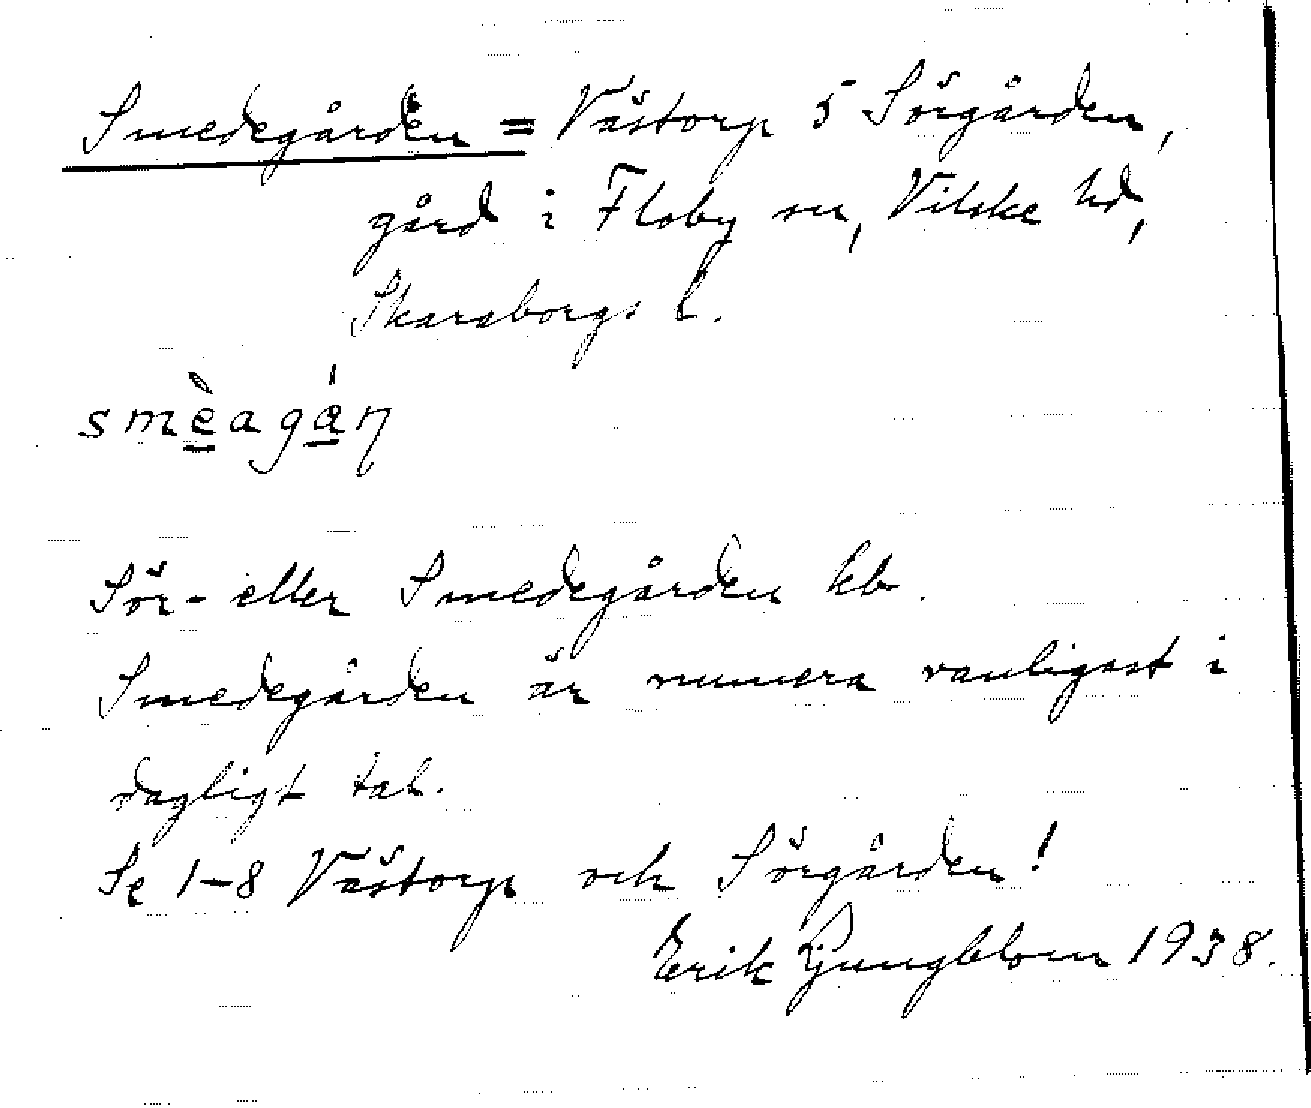 Smedegården = Västorp 5 Sörgården,
gård i Floby sn, Vilske hd,
Skaraborgs l.
smèagán
Sör- eller Smedegården kb.
Smedegården är numera vanligast i
dagligt tal.
Se 1-8 Västorp och Sörgården!
Erik Ljungblom 1938.